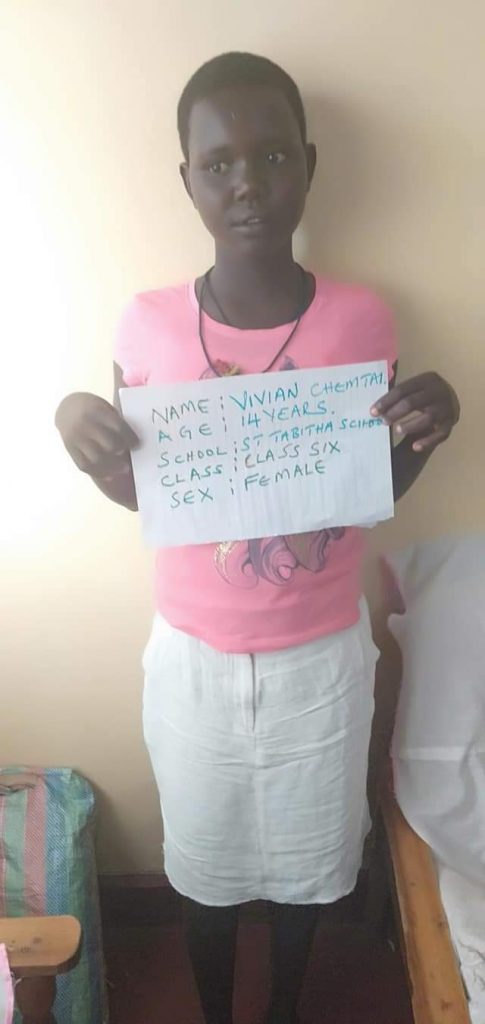 NAME : VIVIAN CHEMTAI.
AGE : 14 YEARS.
SCHOOL : ST TABITHA SCHOOL
CLASS : CLASS SIX
SEX : FEMALE